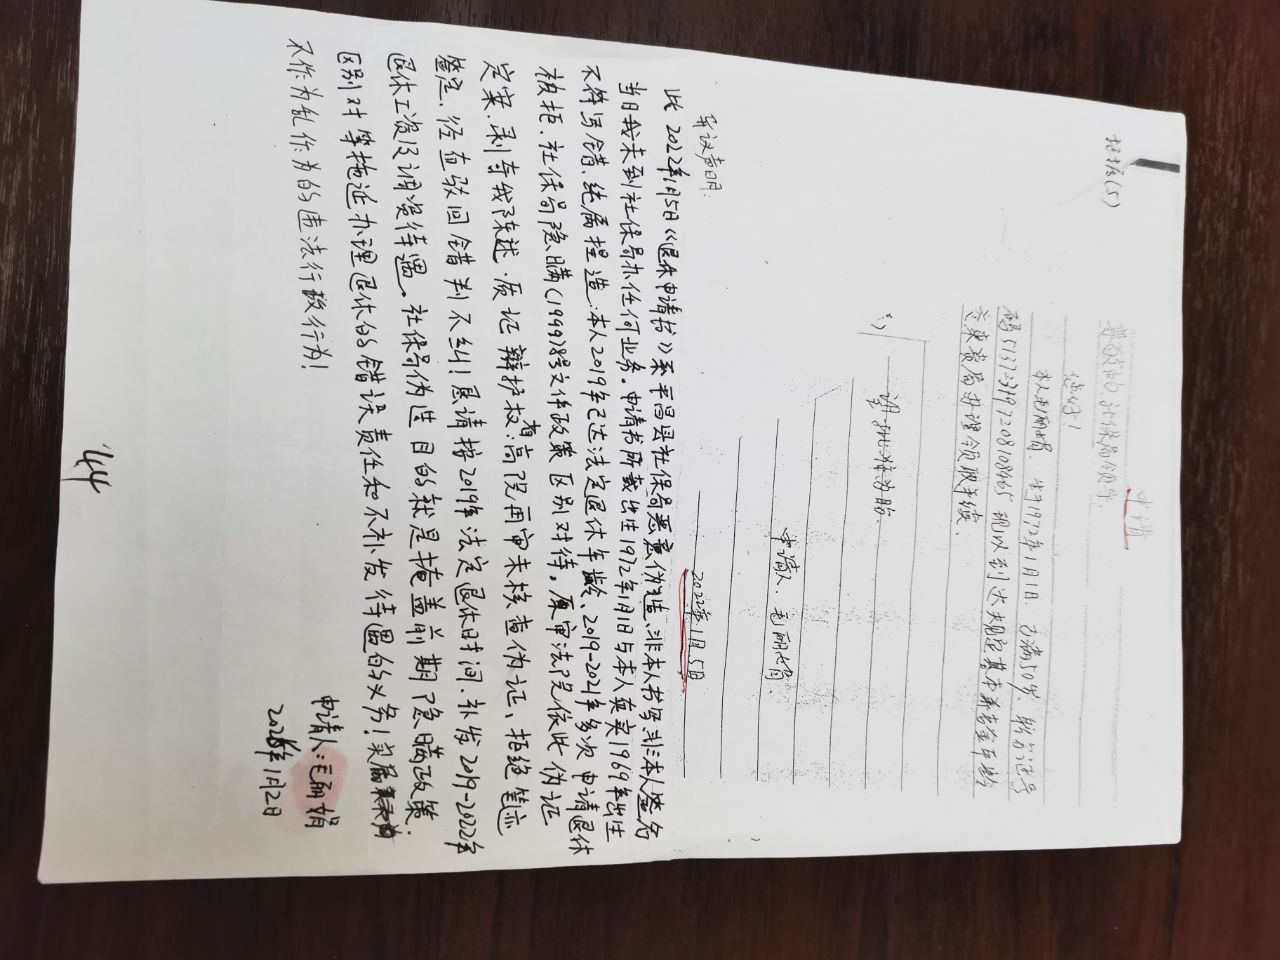 证据(5)
申请
尊敬的社保局领导
您好!
本人毛丽娟 生于1972年1月1日 已满50岁,身份证号
码513723197208108465 现以到达 基本养老金年龄
立来贵局办理领取手续.
望批准为盼.
申请人:毛丽娟.
2022年1月5日
异议声明:
此2022年1月5日《退休申请书》系平昌县社保局恶意伪造、非本人书写、非本人签名
当日我未到社保局办任何业务。申请书所载出生1972年1月1日与本人真实1969年出生
不符写错、纯属捏造:本人2019年已达法定退休年龄、2019-2021年多次申请退休
被拒.社保局隐瞒(1999)8号文件政策区别对待。原审法院依此伪证
定案、剥夺我陈述.质证辩护权;省高院再审未核查伪证、拒绝笔迹
鉴定、径直驳回错判不纠!恳请按2019年法定退休时间、补发2019-2022年
退休工资及调资待遇。社保局伪造目的就是掩盖前期隐瞒政策.
区别对等拖延办理退休的错误责任和不补发待遇的义务!实属
不作为乱作为的违法行政行为!
申请人:毛丽娟
2026年1月2日
44